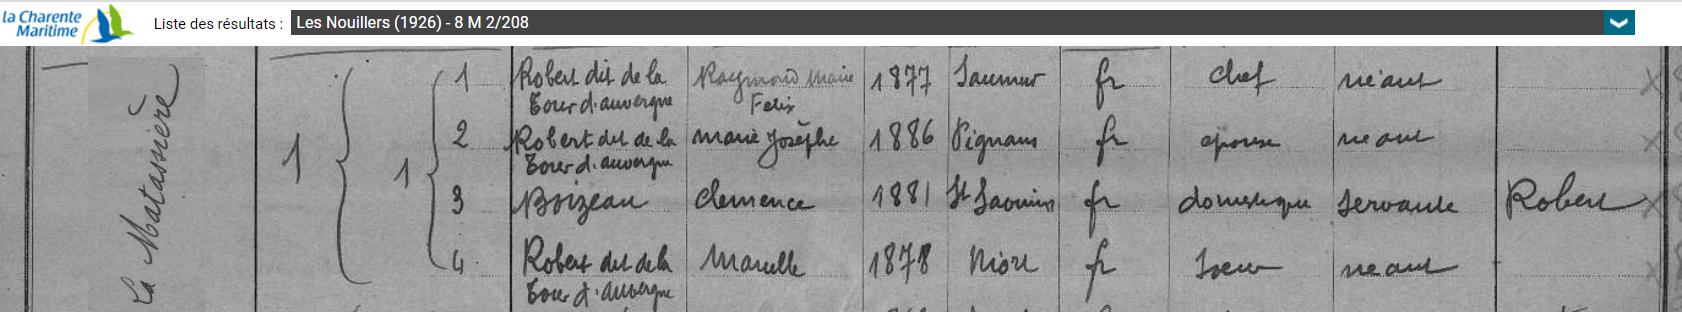 la Charente
Maritime
Liste des résultats : Les Nouillers (1926) - 8 M 2/208
La Matassière
1 1 1 Robert dit de la Raymond Marie 1877 Saumur fr chef néant
Tour d'auvergne Felix
2 Robert dit de la marie Josèphe 1886 Pignans fr épouse néant
Tour d'auvergne
3 Boizeau Clemence 1881 St Savinin fr domestique servante Robert
4 Robert dit de la Marcelle 1878 Niort fr soeur néant
Tour d'auvergne